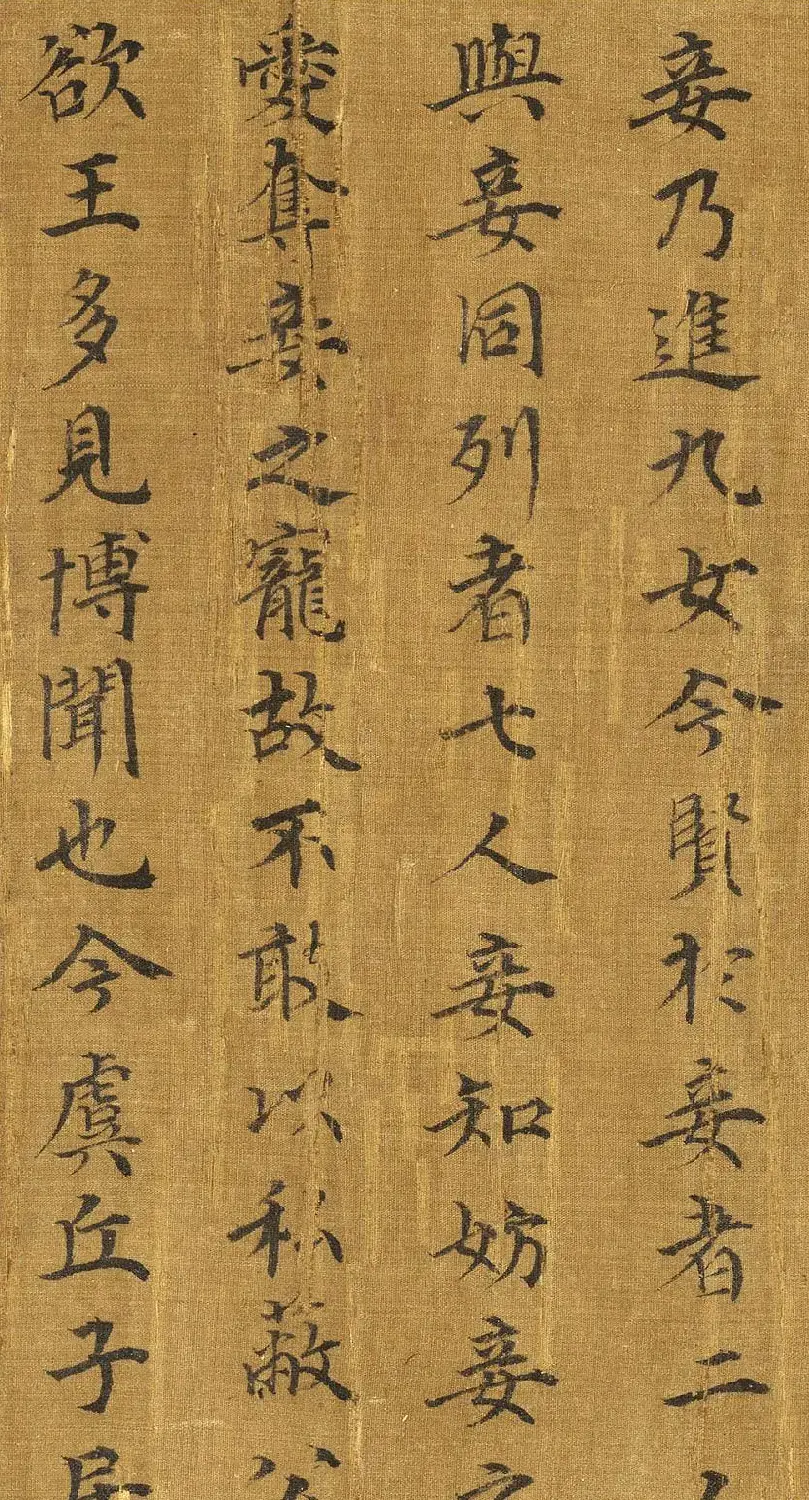 妾乃進九女今賢於妾者二
與妾同列者七人妾知妨妾
愛奪妾之寵故不敢以私蔽公
欲王多見博聞也今虞丘子居